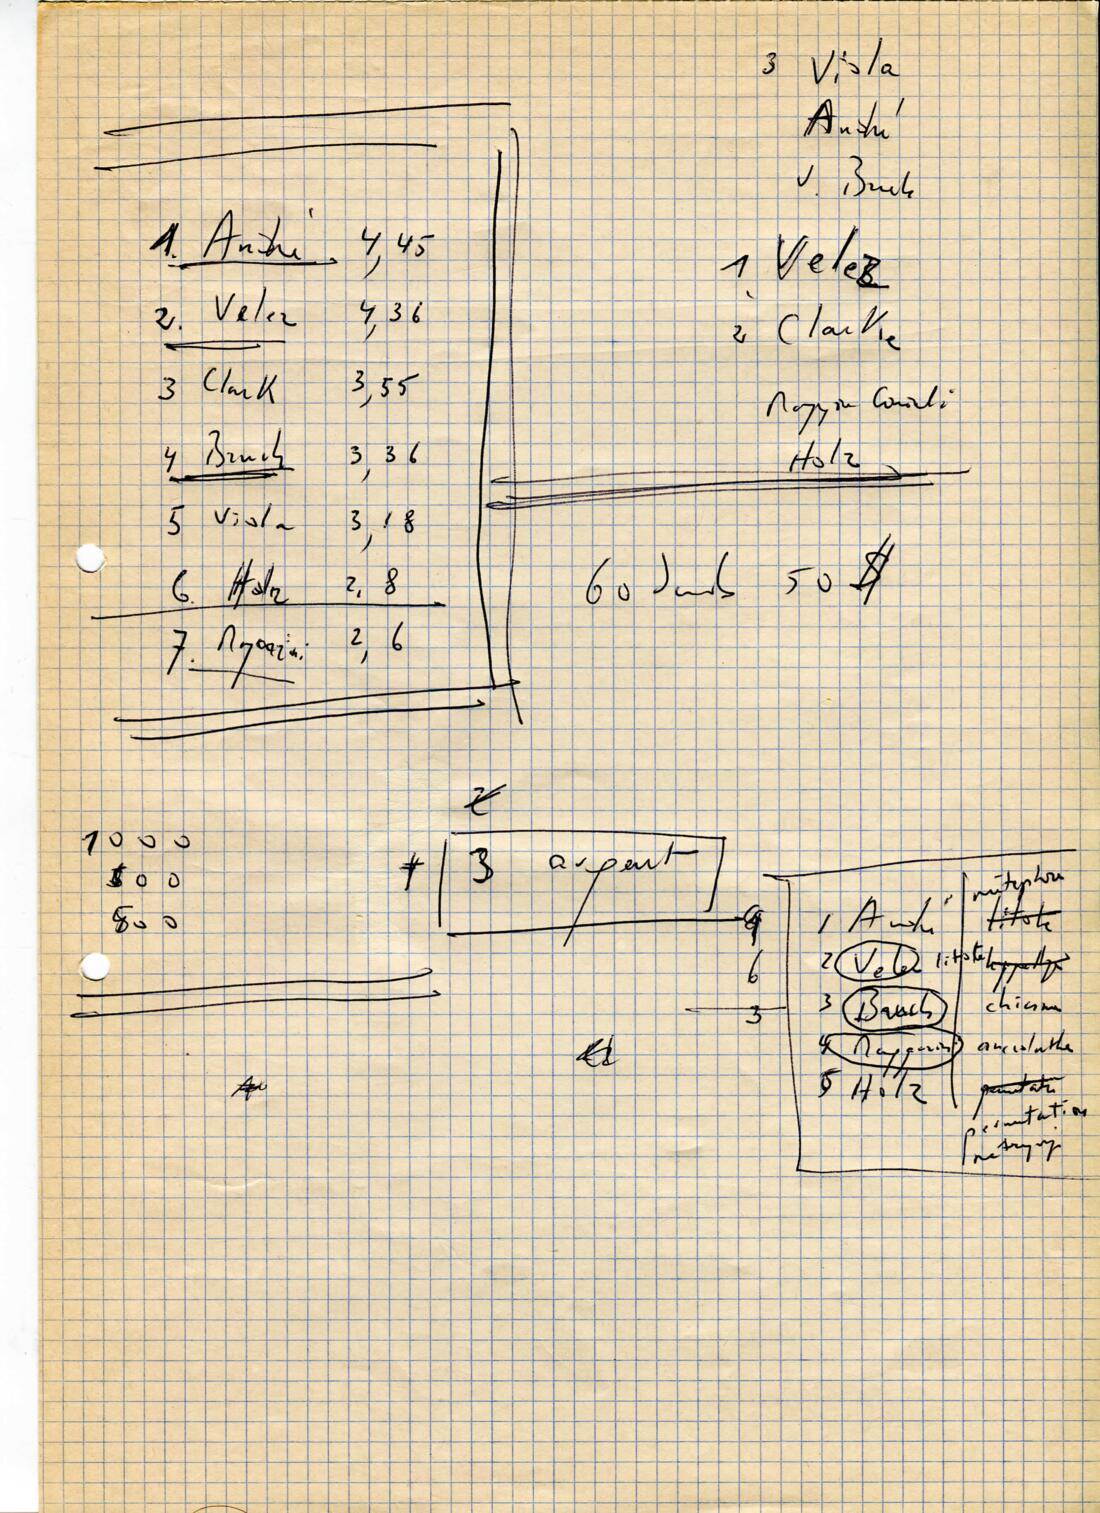 3 Viola
André
v. Bruch
1. André 4,45
2. Velez 4,36
3 Clark 3,55
4 Bruch 3,36
5 Viola 3,18
6. Holz 2,8
7. Magazini 2,6
1 Velez
2 Clarke
Holz
60 50 $
1000
500
500
3 argent
9
6
3
métaphore
1 André litote
2 Velez litote
3 Bruch chiasme
4 anacoluthe
5 Holz
permutation